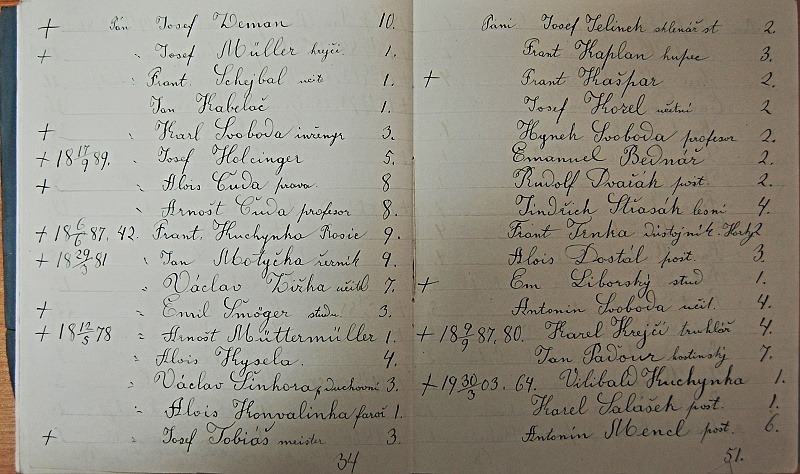 + Pán Josef Zeman 10.
+ " Josef Müller krejčí 1.
" Frant. Schejbal učit 1.
Jan Kabelač 1.
+ " Karl Svoboda inžengr 3.
+ 18 17/9 89. " Josef Holcinger 5.
+ " Alois Čuda prava. 8
" Arnošt Čuda profesor 8.
+ 18 6/6 87. 42. Frant. Kuchynka Rosic 9.
+ 18 29/3 81 " Jan Motyčka 9.
" Václav Žižka učitl 7.
+ " Emil Smöger stud. 3.
+ 18 12/5 78 " Arnošt Müttermüller 1.
" Alois Kysela. 4.
" Václav Sinkora, duchovní 3.
" Alois Konvalinka farář 1.
+ " Josef Tobiáš meister 3.
34
Páni Josef Jelinek sklenář st 2.
Frant Kaplan kupec 3.
+ Frant Kašpar 2.
Josef Kozel učitni 2
Hynek Svoboda profesor 2.
Emanuel Bednář 2.
Rudolf Dvařák post. 2.
Jindřich Střasák lesni 4.
Frant Trnka důstojník. 2
Alois Dostál post. 3.
+ Em Liborský stud 1.
Antonín Svoboda učit. 4.
+ 18 9/9 87. 80. Karel Krejčí truhlář 4.
Jan Paďour hostinský 7.
+ 19 30/3 03. 64. Vilibald Kuchynka 1.
Karel Salášek post. 1.
Antonín Mencl post. 6.
51.